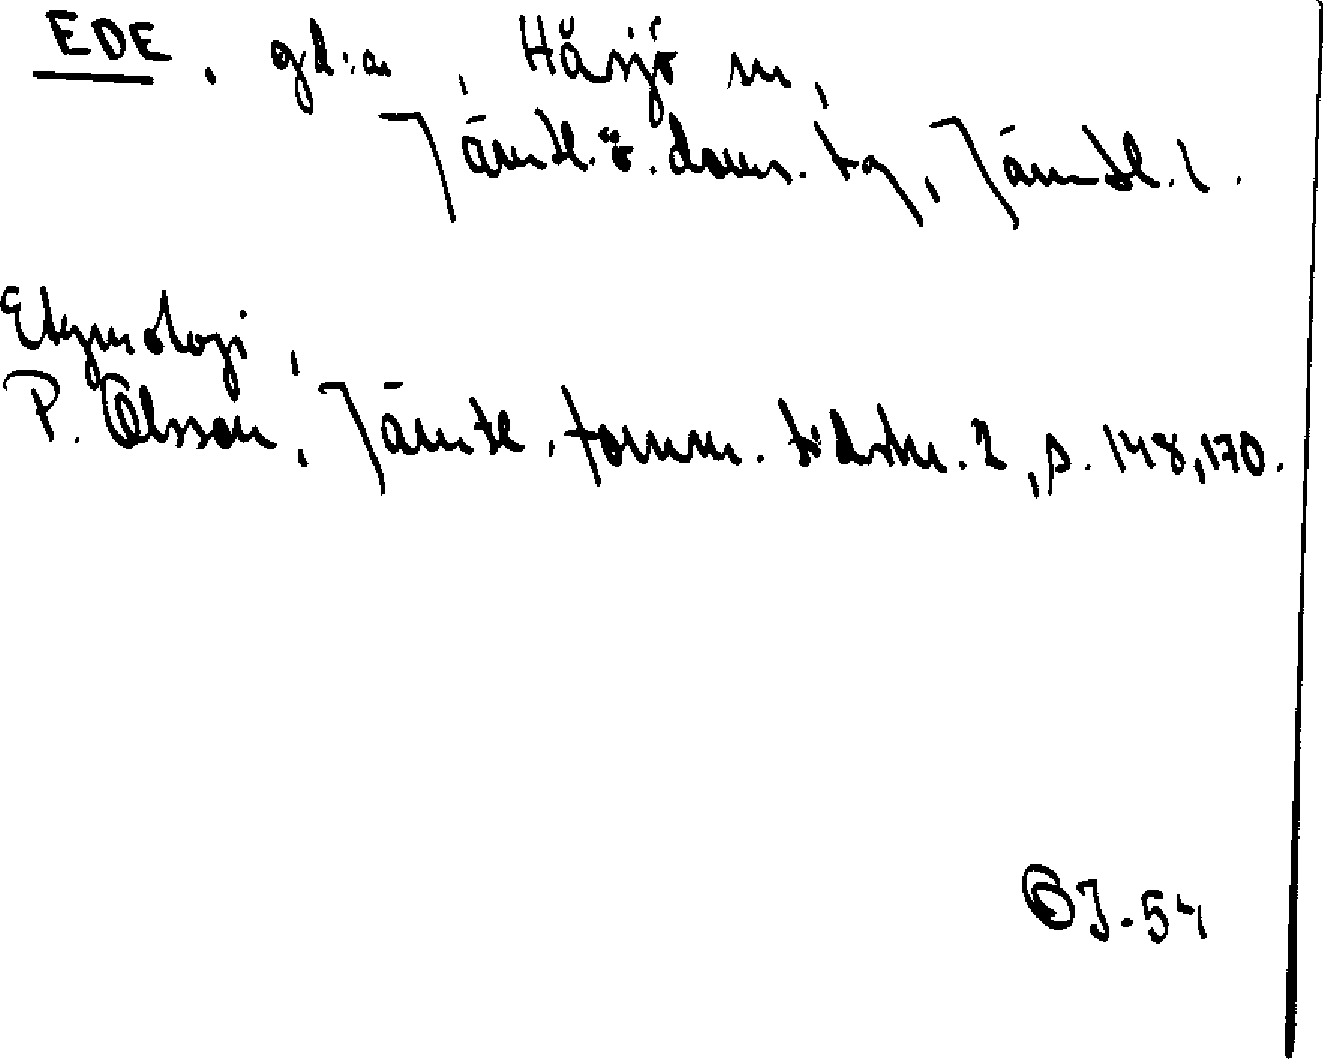 EDE, gd:a, Håsjö sn,
Jämtl. ö. doms. tg, Jämtl. l.
Etymologi,
P. Olsson, Jämtl. fornm. tidskr. 2, s. 148, 170.
OJ-54